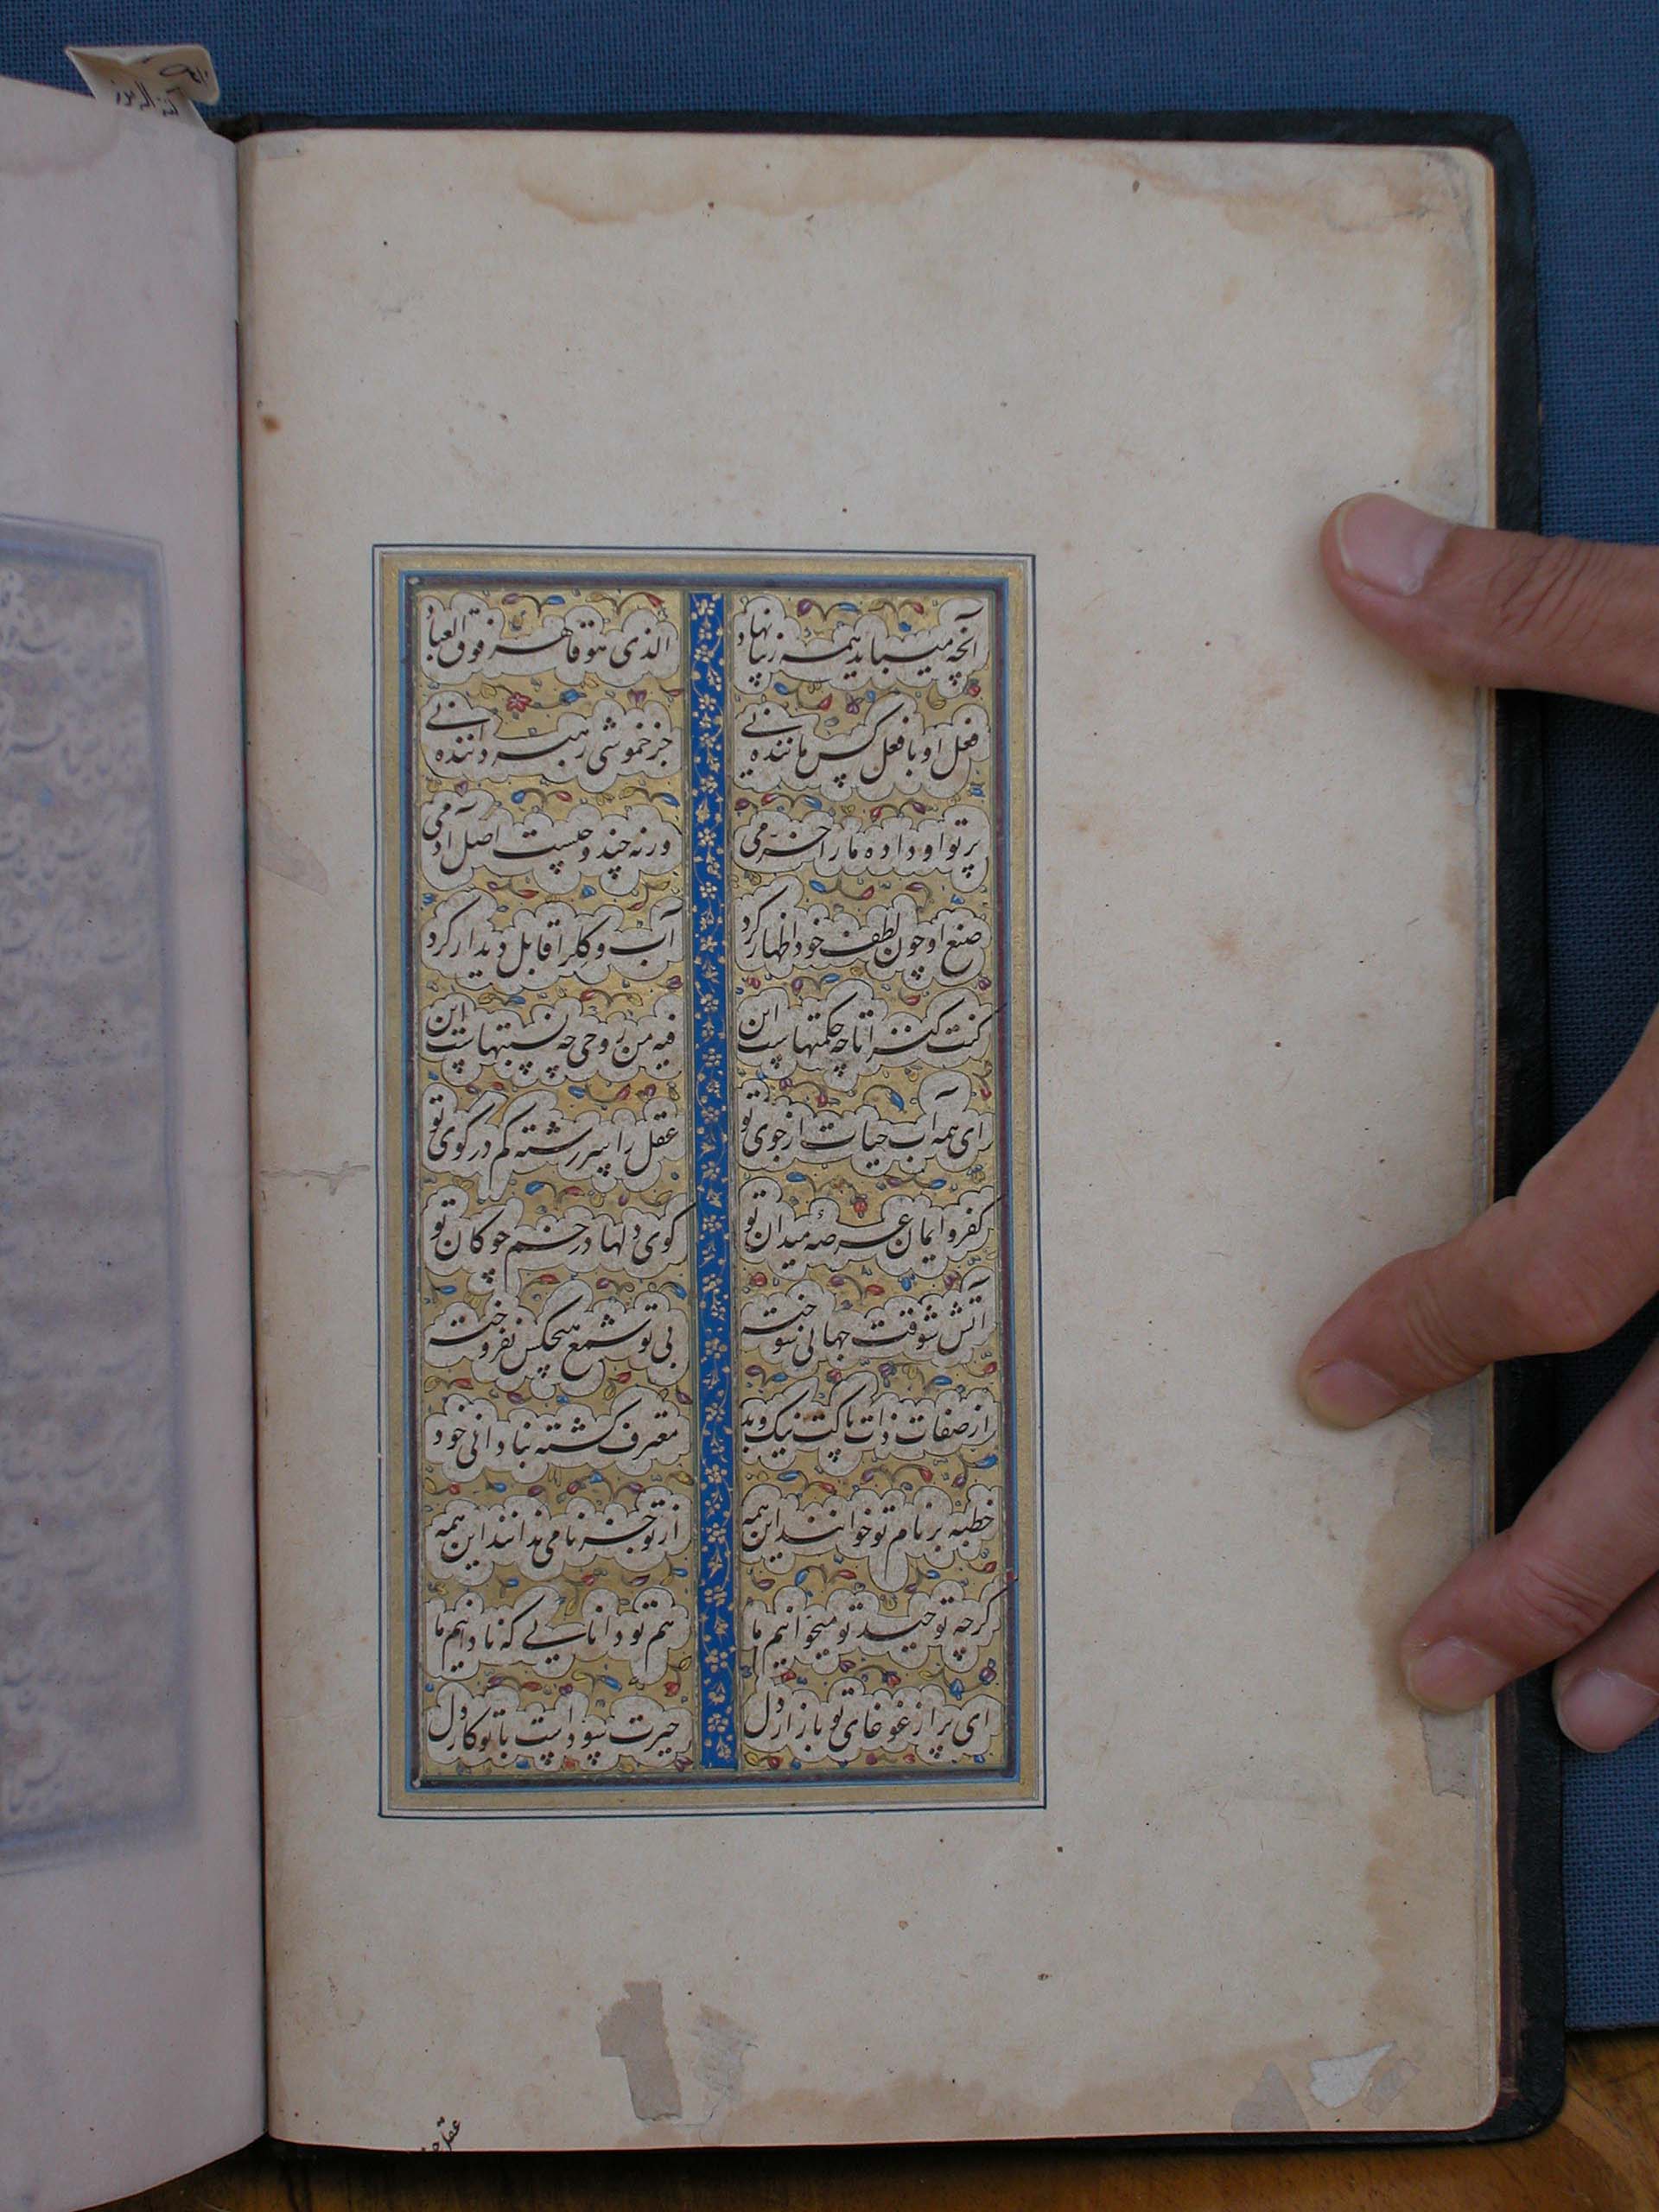 آنچه میباید همه زینها نهاد الذی هو قاهر فوق العباد
فعل او با فعل کس ماننده نی جز خموشی رهبر داننده نی
پرتو او داده ما را خرمی ورنه چند و چیست اصل آدمی
صنع او چون لطف خود اظهار کرد آب و کلرا قابل دیدار کرد
کنت کنزا تا چه حکمتهاست این فیه من روحی چه نسبتهاست این
ای همه آب حیات از جوی تو عقل را سررشته کم در کوی تو
کفر و ایمان عرصهٔ میدان تو کوی دلها در خم چوکان تو
آتش شوقت جهانی سوخته بی تو شمع هیچکس نفروخته
از صفات ذات پاکت نیک و بد معترف کشته بنادانی خود
خطبه بر نام تو خوانند این همه از تو جز نامی ندانند این همه
کرچه توحید تو میخوانیم ما هم تو دانایی که نادانیم ما
ای پر از غوغای تو بازار دل حیرت سودات با تو کار دل
عقل